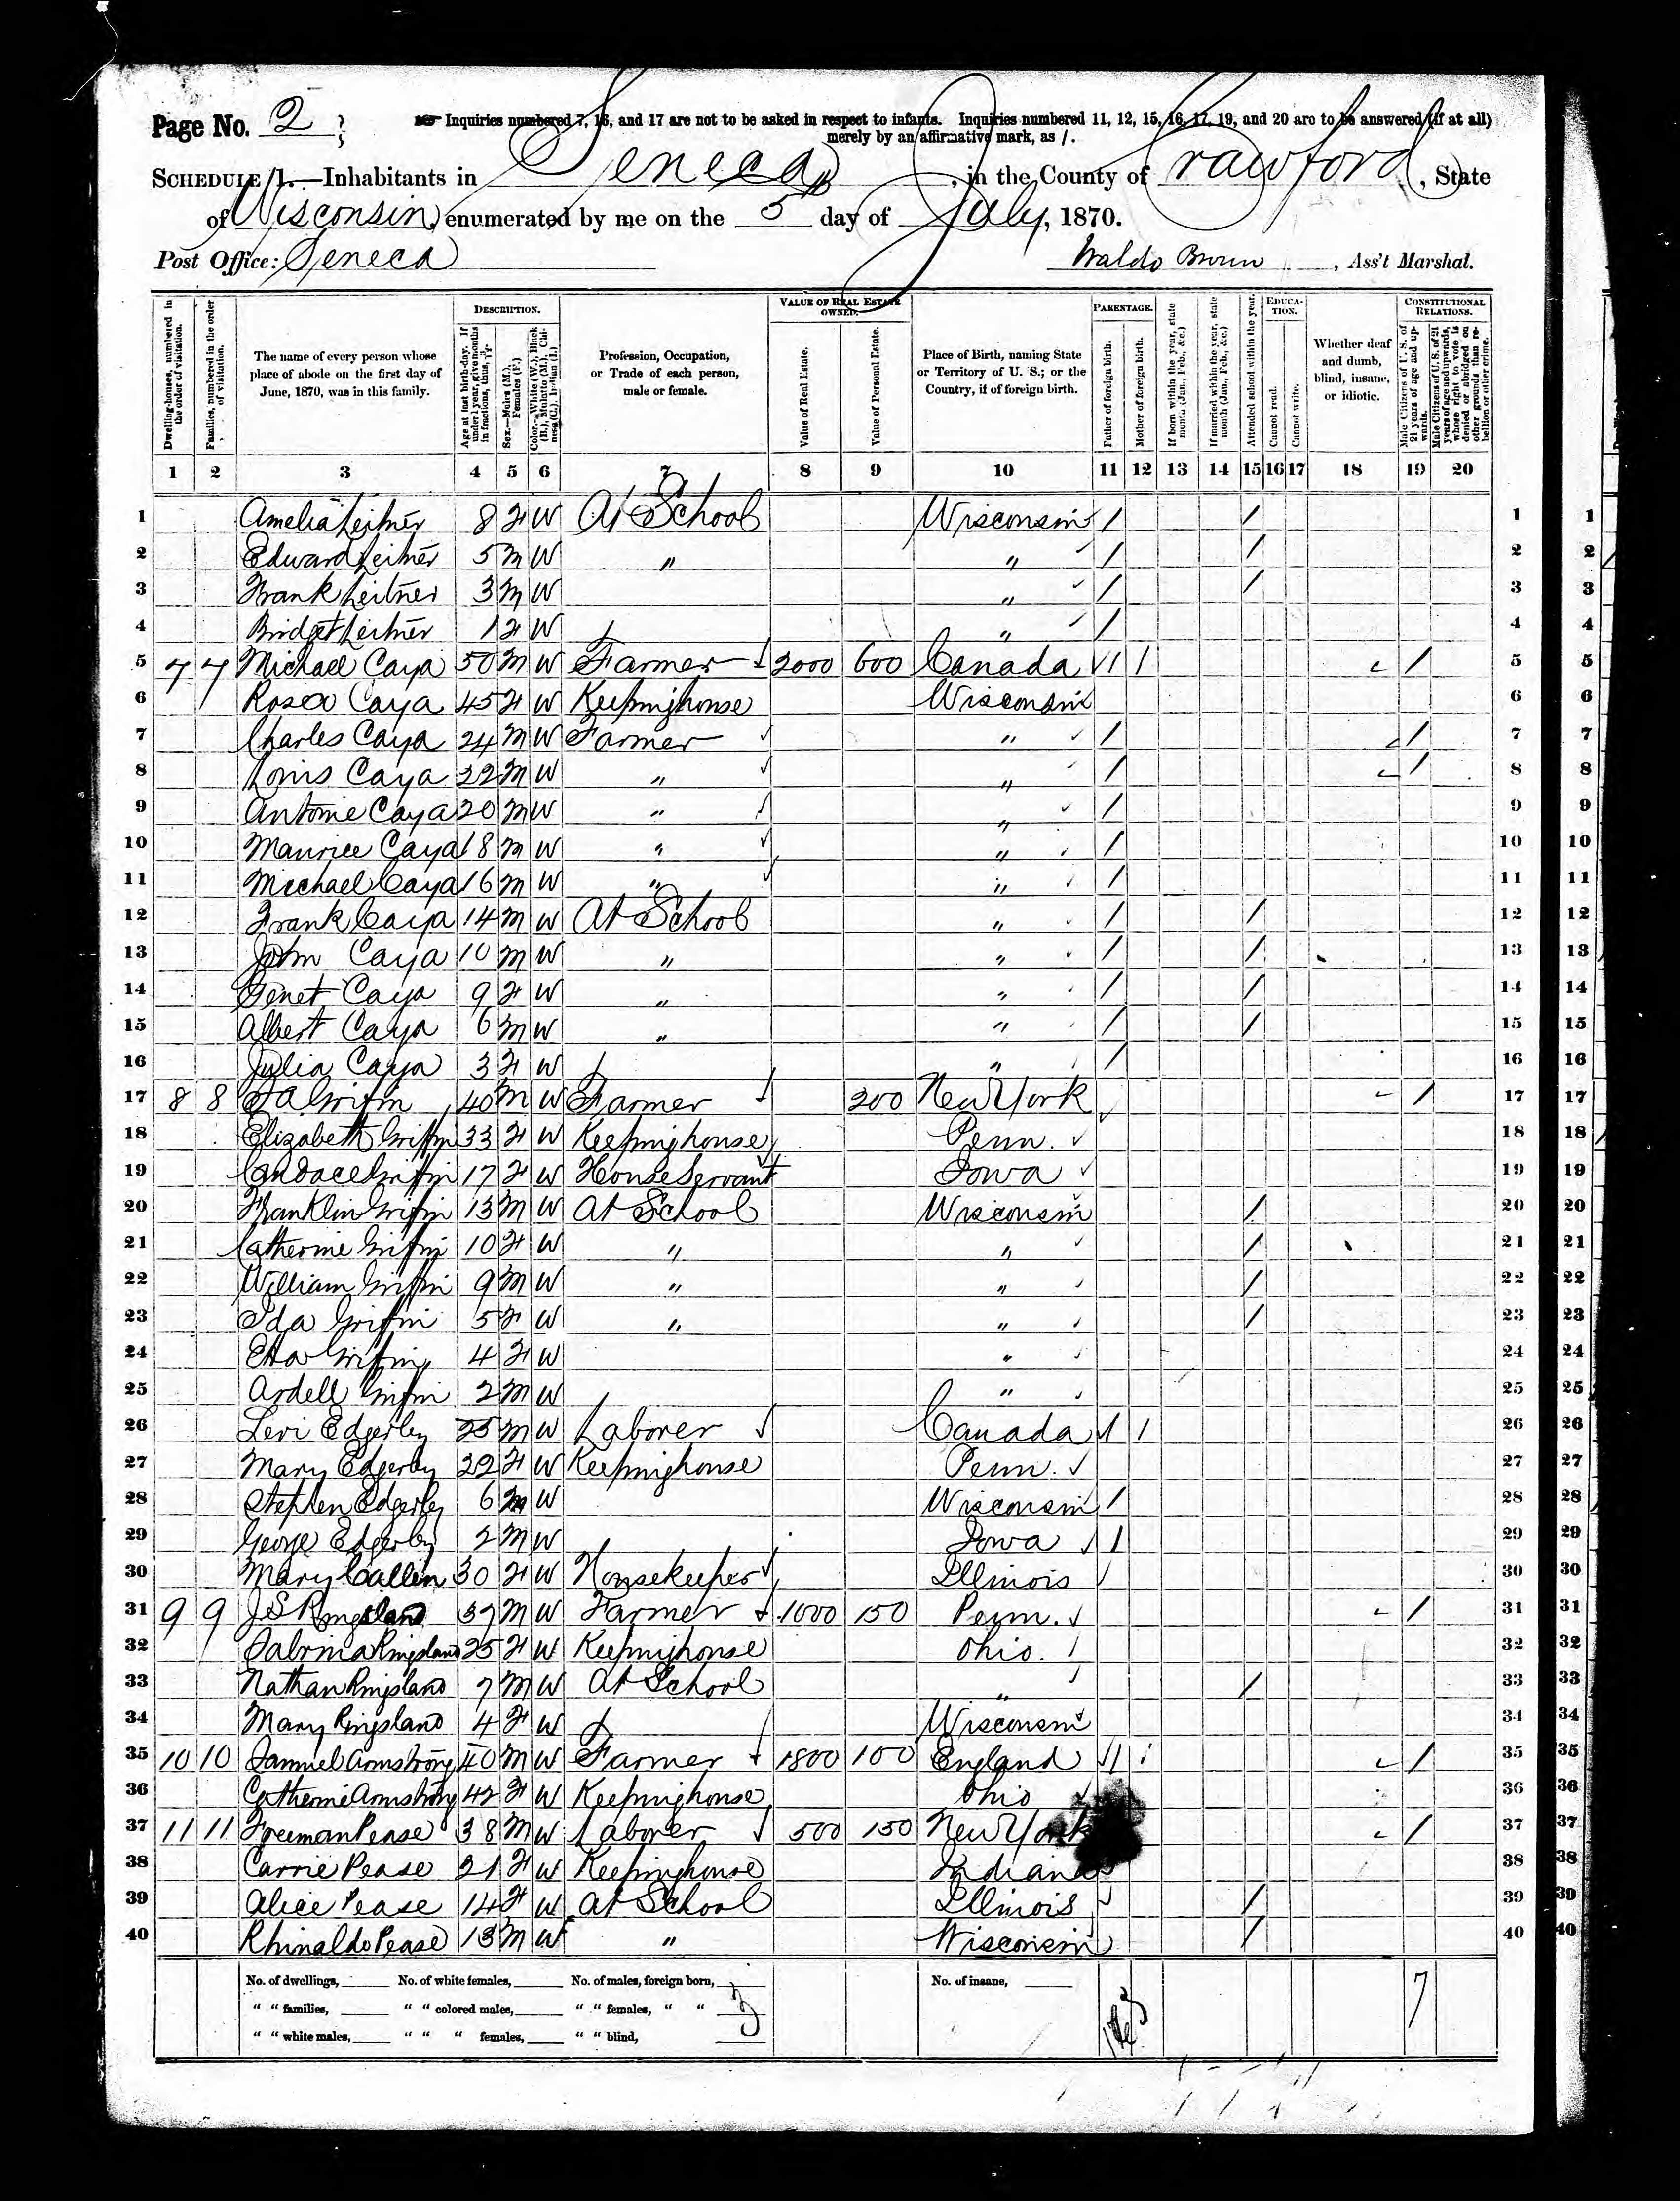 Page No. 2
Inquiries numbered 7, 16, and 17 are not to be asked in respect to infants. Inquiries numbered 11, 12, 15, 16, 17, 19, and 20 are to be answered (if at all)
merely by an affirmative mark, as /.
SCHEDULE 1.—Inhabitants in Seneca, in the County of Crawford, State
of Wisconsin, enumerated by me on the 5 day of July, 1870.
Post Office: Seneca Waldo Brown, Ass't Marshal.
Dwelling-houses, numbered in the order of visitation.
Families, numbered in the order of visitation.
The name of every person whose place of abode on the first day of June, 1870, was in this family.
DESCRIPTION.
Age at last birth-day. If under 1 year, give months in fractions, thus, 3/12
Sex.—Males (M.), Females (F.)
Color.—White (W.), Black (B.), Mulatto (M.), Chinese (C.), Indian (I.)
Profession, Occupation, or Trade of each person, male or female.
VALUE OF REAL ESTATE OWNED.
Value of Real Estate.
Value of Personal Estate.
Place of Birth, naming State or Territory of U. S.; or the Country, if of foreign birth.
PARENTAGE.
Father of foreign birth.
Mother of foreign birth.
If born within the year, state month (Jan., Feb., &c.)
If married within the year, state month (Jan., Feb., &c.)
Attended school within the year.
EDUCATION.
Cannot read.
Cannot write.
Whether deaf and dumb, blind, insane, or idiotic.
CONSTITUTIONAL RELATIONS.
Male Citizens of U. S. of 21 years of age and upwards.
Male Citizens of U. S. of 21 years of age and upwards, whose right to vote is denied or abridged on other grounds than rebellion or other crime.
1 2 3 4 5 6 7 8 9 10 11 12 13 14 15 16 17 18 19 20
1 Amelia Leitner 8 F W At School Wisconsin / / 1
2 Edward Leitner 5 M W " " / / 2
3 Frank Leitner 3 M W " / / 3
4 Bridget Leitner 1 F W " / 4
5 7 7 Michael Caya 50 M W Farmer 2000 600 Canada / / / 5
6 Rosa Caya 45 F W Keeping house Wisconsin 6
7 Charles Caya 24 M W Farmer " / / 7
8 Louis Caya 22 M W " " / / 8
9 Antoine Caya 20 M W " " / 9
10 Maurice Caya 18 M W " " / 10
11 Michael Caya 16 M W " " / 11
12 Frank Caya 14 M W At School " / / 12
13 John Caya 10 M W " " / / 13
14 Genet Caya 9 F W " " / / 14
15 Albert Caya 6 M W " " / / 15
16 Julia Caya 3 F W " / 16
17 8 8 Griffin 40 M W Farmer 200 New York / 17
18 Elizabeth Griffin 33 F W Keeping house Penn. 18
19 Candace Griffin 17 F W House Servant Iowa 19
20 Franklin Griffin 13 M W At School Wisconsin / 20
21 Catherine Griffin 10 F W " " / 21
22 William Griffin 9 M W " " / 22
23 Ida Griffin 5 F W " " / 23
24 Etta Griffin 4 F W " 24
25 Ardell Griffin 2 M W " 25
26 Levi Edgerley 25 M W Laborer Canada / / 26
27 Mary Edgerley 22 F W Keeping house Penn. 27
28 Stephen Edgerley 6 M W Wisconsin / 28
29 George Edgerley 2 M W Iowa / 29
30 Mary Callen 30 F W Housekeeper Illinois 30
31 9 9 J S Ringsland 37 M W Farmer 1000 150 Penn. / 31
32 Sabrina Ringsland 25 F W Keeping house Ohio. 32
33 Nathan Ringsland 7 M W At School " / 33
34 Mary Ringsland 4 F W Wisconsin 34
35 10 10 Samuel Armstrong 40 M W Farmer 1800 100 England / / / 35
36 Catherine Armstrong 42 F W Keeping house Ohio 36
37 11 11 Freeman Pease 38 M W Laborer 500 150 New York / 37
38 Carrie Pease 31 F W Keeping house Indiana 38
39 Alice Pease 14 F W At School Illinois / 39
40 Rhinaldo Pease 13 M W " Wisconsin / 40
No. of dwellings, No. of white females, No. of males, foreign born, No. of insane,
" " families, " " colored males, " " females, " "
" " white males, " " " females, " " blind,
7